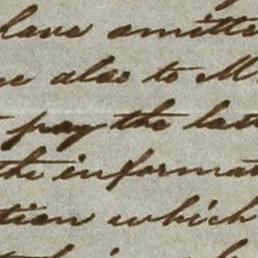 have omitte
e also to M
pay the last
the informat
tion which